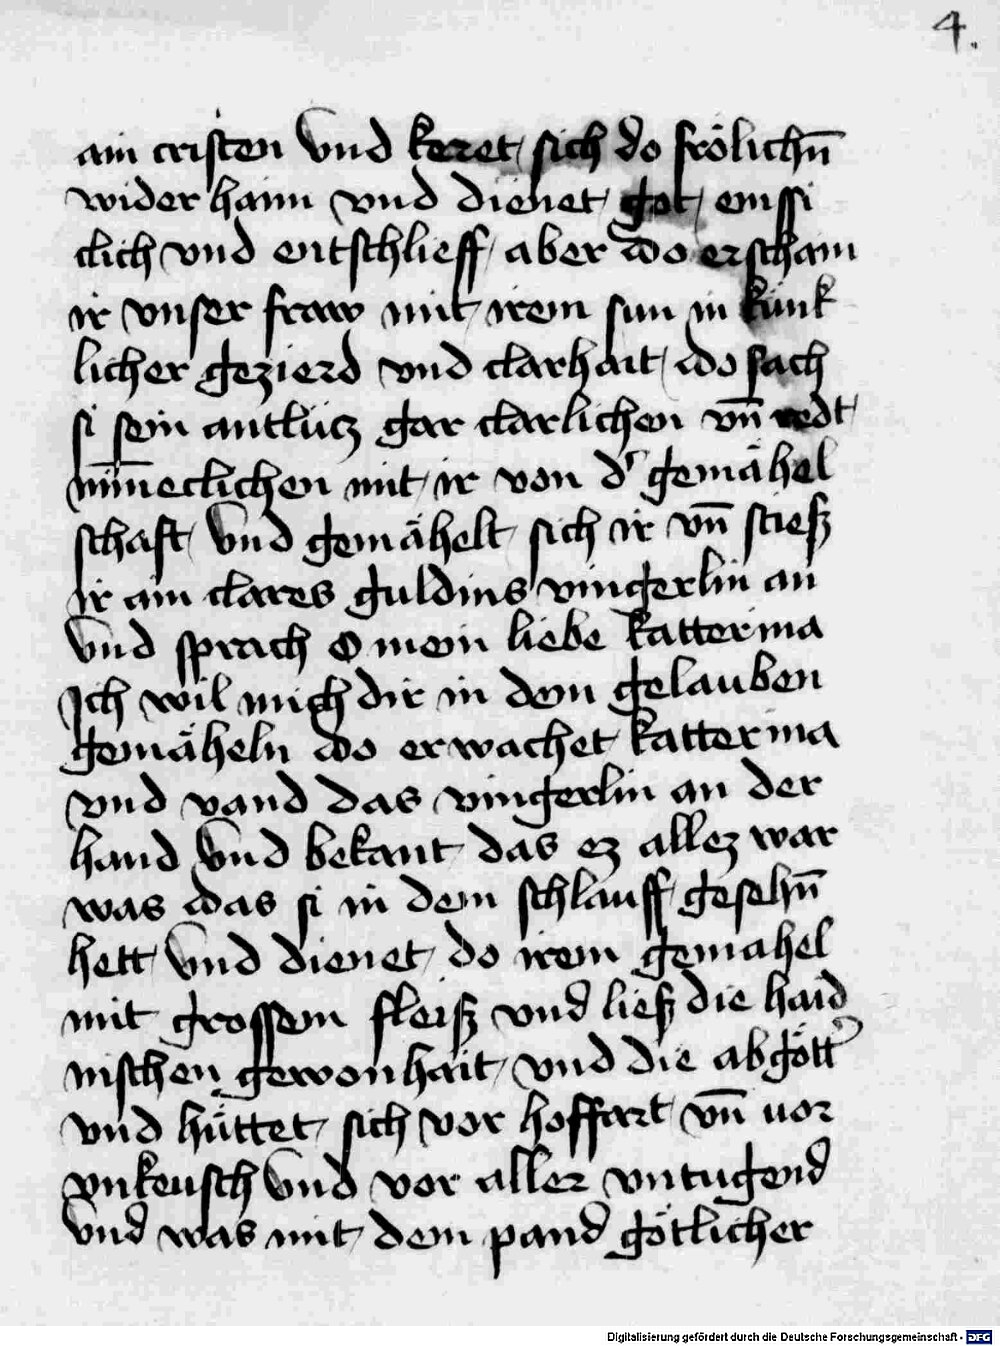 4.
ain cristen vnd keret sich do frölichn̄
wider haim vnd dienet got emssi
clich vnd entschlieff aber do erscham
ir vnser fraw mit irem sun in künk
licher gezierd vnd clarhait do sach
si sein antlucz gar clarlichen vn̄ redt
mīneclichen mit ir von dʳ gemähel
schaft vnd gemähelt sich ir vn̄ stiesz
ir ain clares guldins vingerlin an
vnd sprach o mein liebe katterina
Ich wil mich dir in dem gelauben
gemäheln do erwachet katterina
vnd vand das vingerlin an der
hand vnd bekant das ez allez war
was das si in dem schlauff gesehn̄
hett vnd dienet do irem gemahel
mit grossem fleisz vnd liesz die haid
nischen gewonhait vnd die abgöttʾ
vnd hüttet sich vor hoffart vn̄ uor
vnkeusch vnd vor aller vntugend
vnd was mit dem pand götlicher
Digitalisierung gefördert durch die Deutsche Forschungsgemeinschaft - DFG